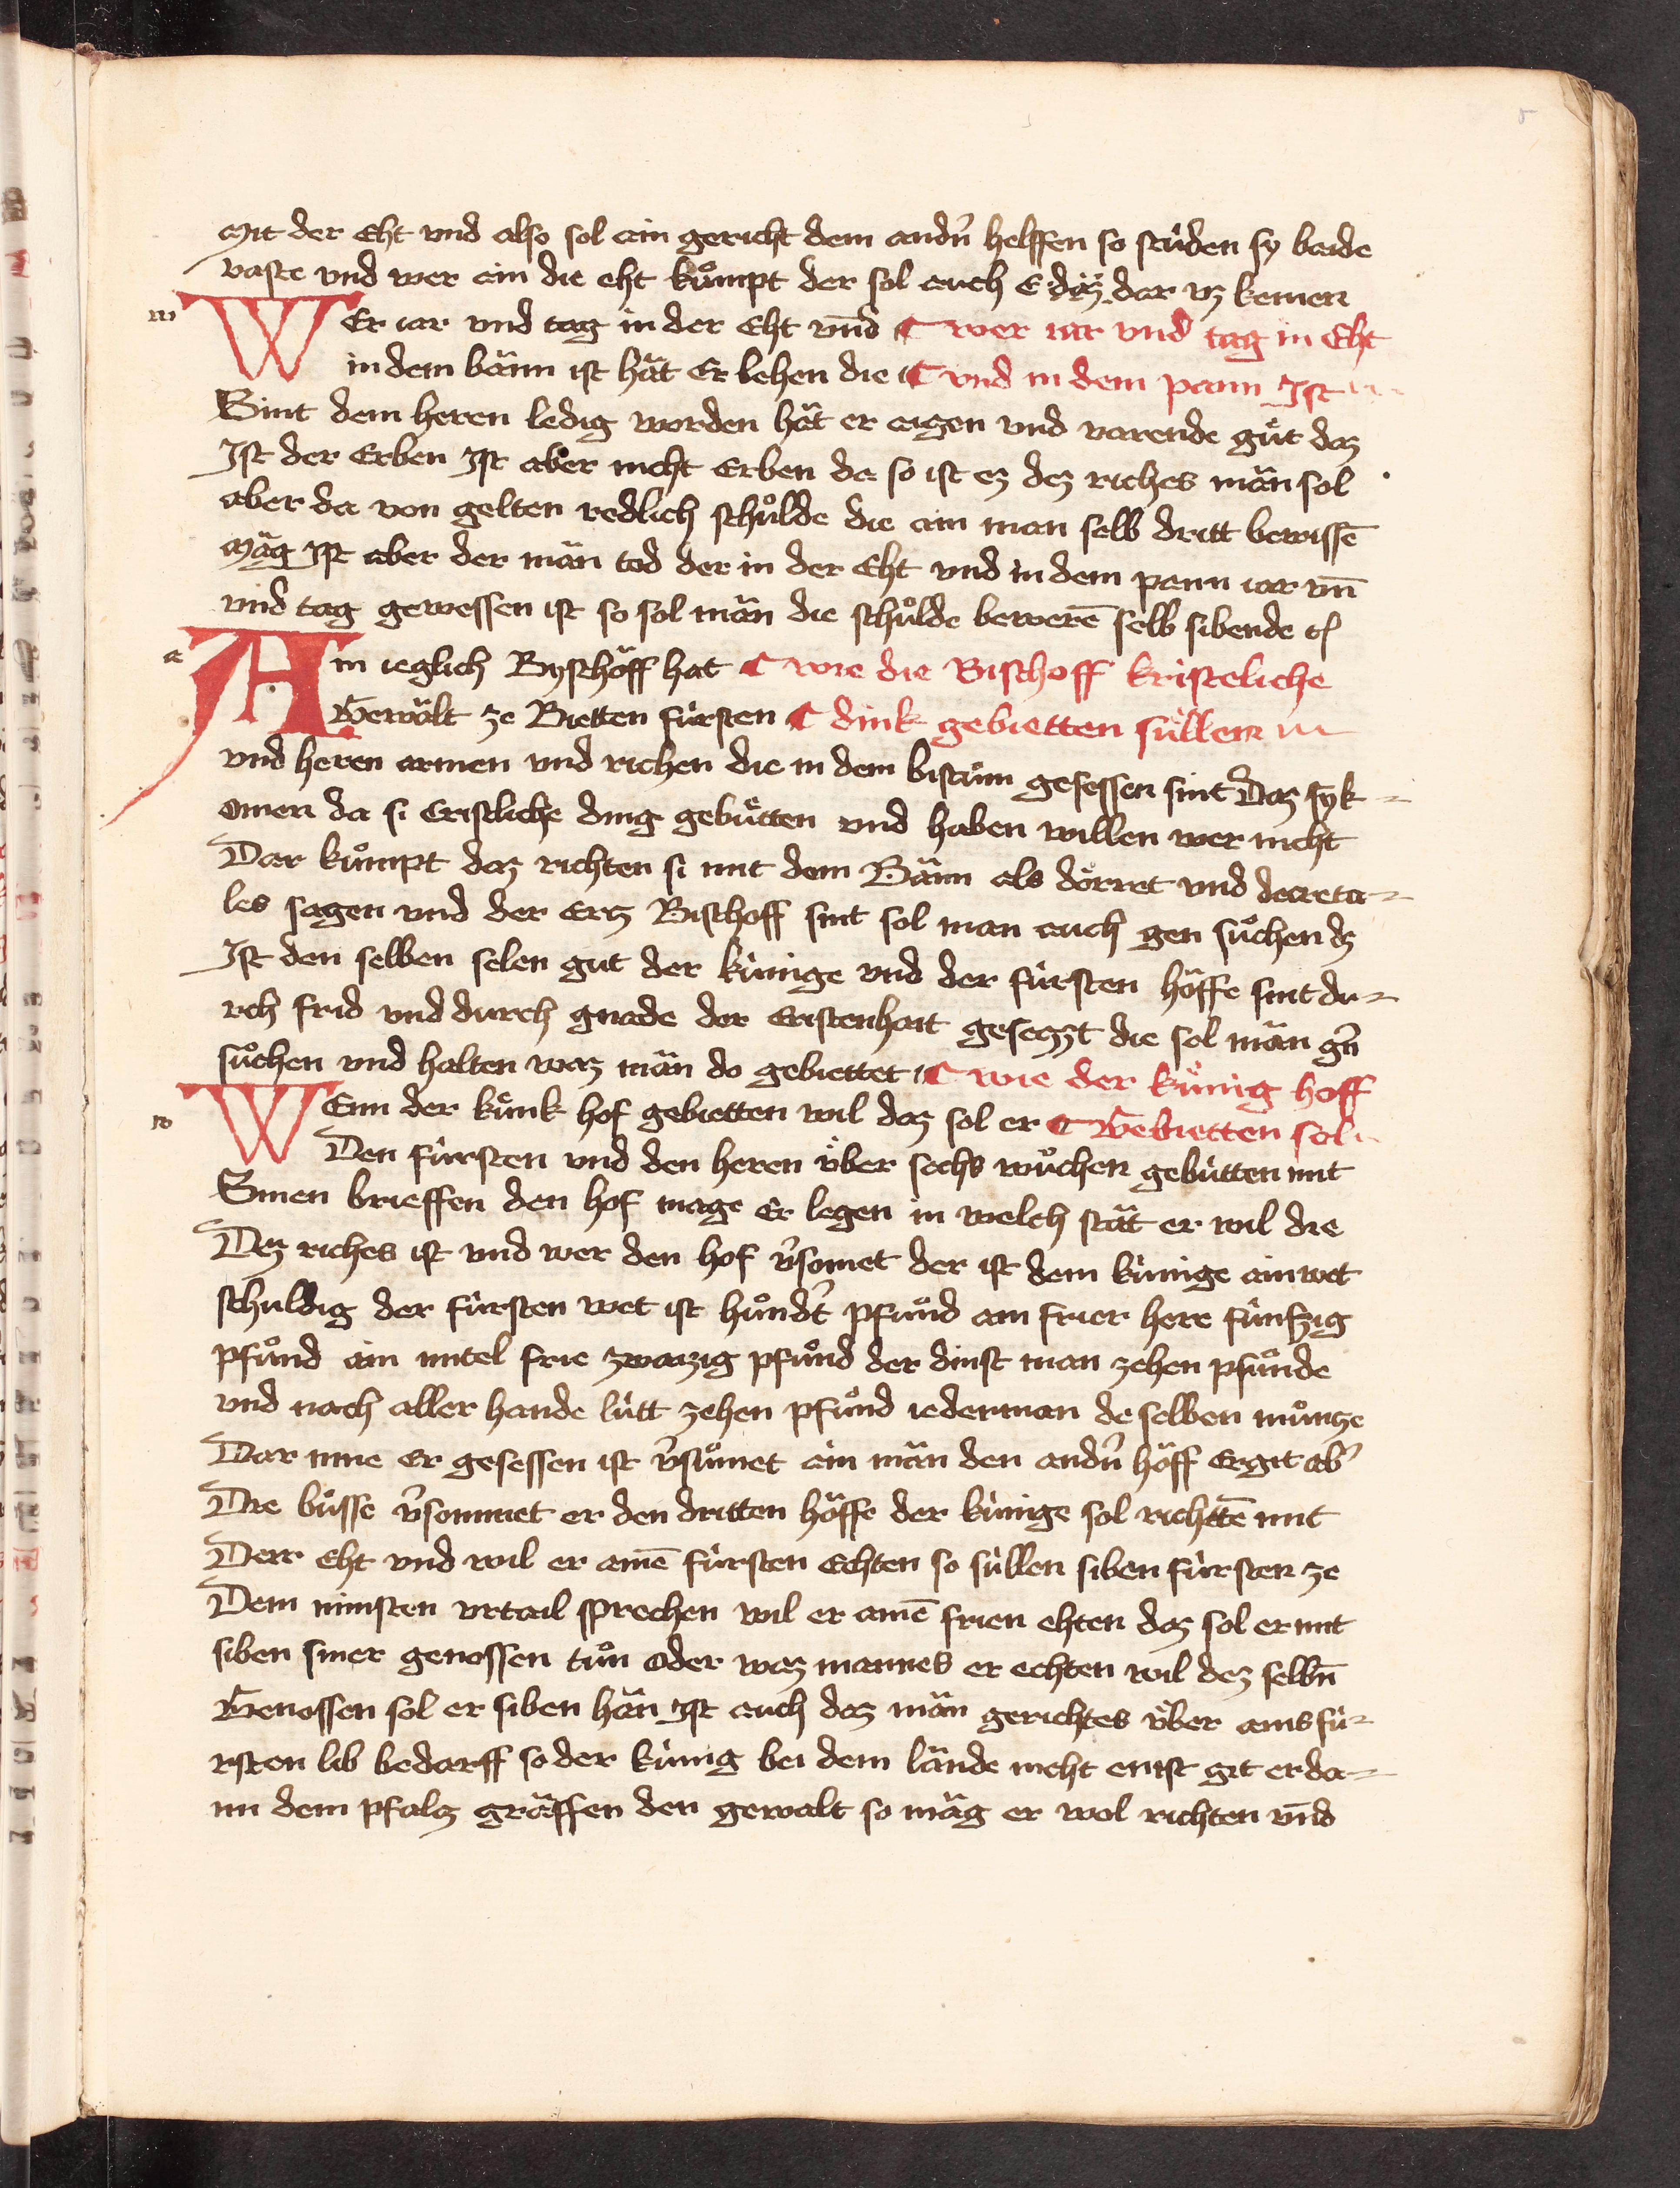 mit der Eht vnd also sol ain gericht dem andn̄ helffen so stůden sy baide
vaste vnd wer ain die eht kůmpt der sol auch E däz dar vz kemen
w
WEr iar vnd tag in der Eht vn̄d ¶ wer iar vnd tag in Eht
in dem bänn ist hät Er lehen die ¶ vnd in dem pann Ist
Sint dem heren ledig worden hät er aigen vnd varende gůt daz
Ist der Erben Ist aber nicht Erben da so ist ez dez riches män sol
aber da von gelten redlich schůlde die ain man selb dritt bewissē
mäg Ist aber der män tod der in der Eht vnd in dem pann iar vn̄
vnd tag gewessen ist so sol män die schůlde bewerē selb sibende
a
Ain ieglich Byschöff hat ¶ wie die Bischoff kristeliche
Gewält ze Bietten fürsten ¶ dink gebietten süllen
vnd heren armen vnd richen die in dem bistům gesessen sint Daz syk-
omen da si Cristliche ding gebütten vnd haben willen wer nicht
Dar kůmpt daz richten si mit dem Bänn als dörret vnd decreta-
les sagen vnd der Ertz Bischoff sint sol man auch gen sůchen dz
Ist den selben selen gut der künige vnd der fürsten höffe sint du-
rch frid vnd durch gnade der Cristenhait gesetzt die sol män gn̄
sůchen vnd halten waz män do gebiettet ¶ wie der künig hoff
w
WEnn der künk hof gebietten wil daz sol er ¶ Gebietten sol
Den fürsten vnd den heren über sechs wůchen gebütten mit
Sinen brieffen den hof mage Er legen in welch stät er wil die
Dez riches ist vnd wer den hof v̄somet der ist dem künige ain wet
schuldig der fürsten wet ist hůndt̄ pfund ain frier here fünfzig
pfůnd ain mitel frie zwaizig pfůnd der dinst man zehen pfůnde
vnd nach aller hande lütt zehen pfůnd iederman de selben můntze
Dar inne er gesessen ist v̄sůmet ain män den andn̄ höff Er git ab̄
Die bůsse v̄sommet er den dritten höffe der künige sol richtē mit
Derr Eht vnd wil er ainē fürsten Echten so süllen siben fürsten ze
Dem minsten vrtail sprechen wil er ainē frien ehten daz sol er mit
siben siner genossen tůn oder waz mannes er echten wil dez selbn̄
Genossen sol er siben hän Ist auch daz män gerichtes über ains fü-
rsten lib bedarff so der künig bei dem lände nicht enist git er da-
nn dem pfaltz gräffen den gewalt so mäg er wol richten vn̄d